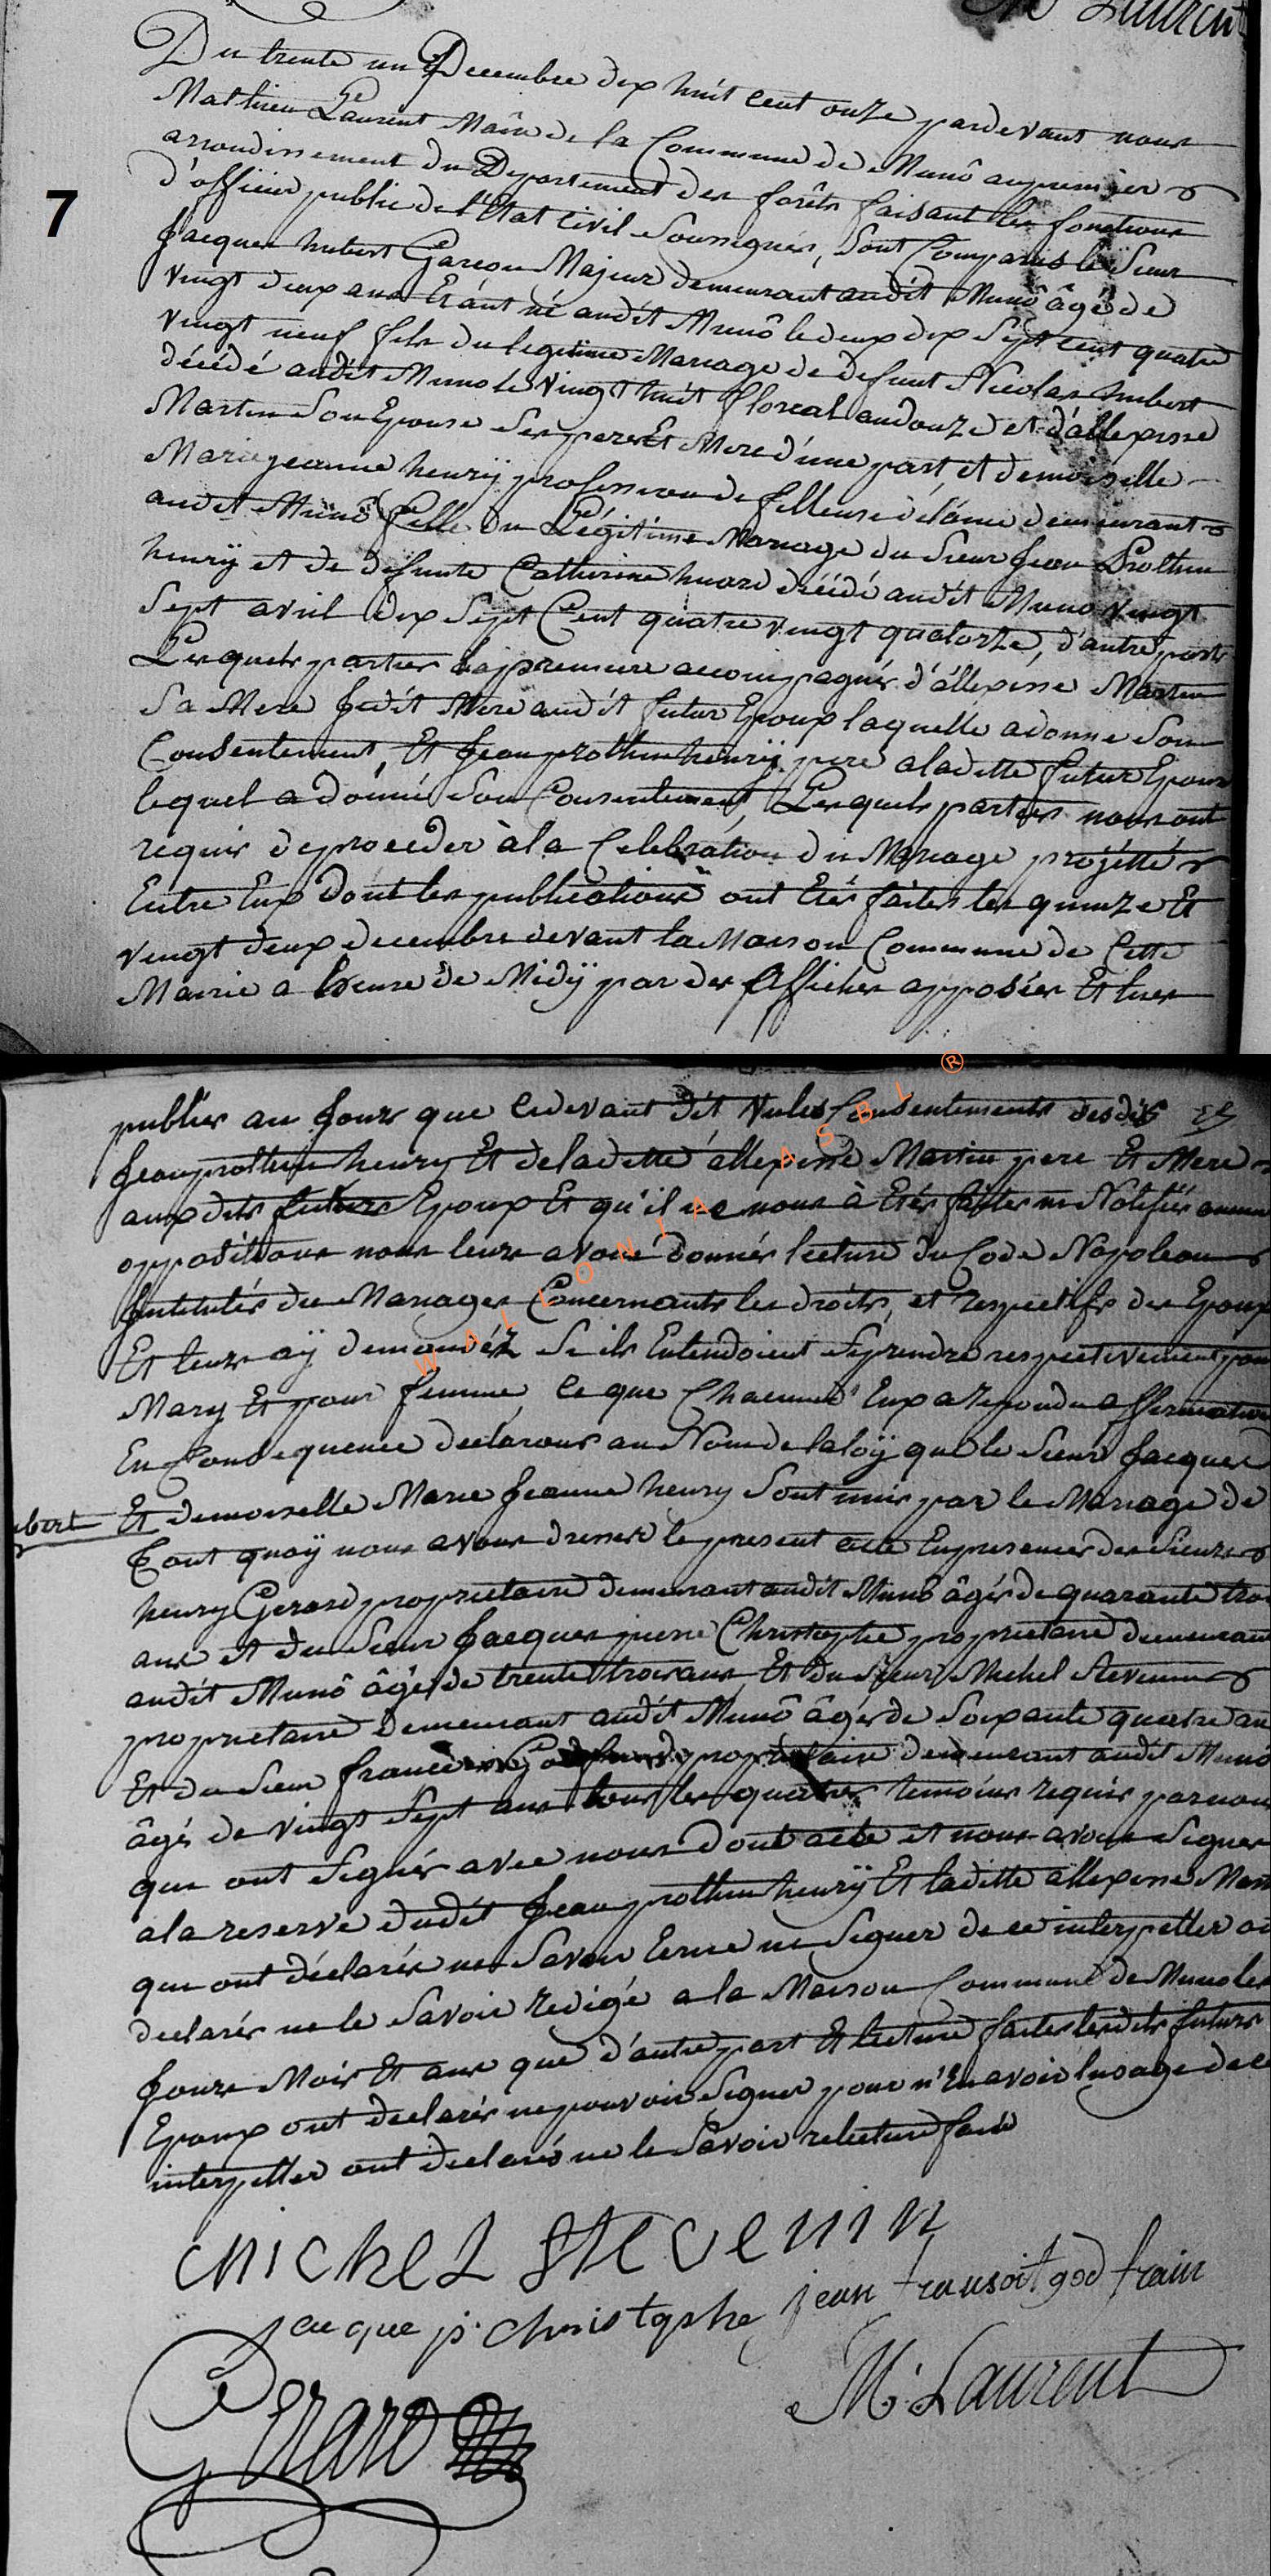 M Laurent
Du trente un Decembre dix huit cent onze pardevant nous
Mathieu Laurent Maire de la Commune de Munô au premier
arrondissement du Departement des forêts faisant les fonctions
7
d'officier public de l'Etat Civil Soussignés, Sont Comparus le Sieur
Jacques hubert Garcon Majeur demeurant audit Munô âgé de
vingt deux ans Etant né audit Munô le deux dix Sept cent quatre
vingt neuf fils du legitime Mariage de defunt Nicolas hubert
décédé audit Muno le vingt huit floreal an douze et d'allexisse
Martin Son Epouse Ses pere Et Mere d'une part, et demoiselle
Marie jeanne henrÿ profession de filleuse de laine demeurant
audit Munô fille du Légitime Mariage du Sieur Jean Prothin
henrÿ et de defunte Catherine huard décédé audit Muno vingt
Sept avril dix Sept Cent quatre vingt quatorze, d'autre part
Lesquels parties la premiere accompagnés d'allexisse Martin
Sa Mere Judit Mere audit futur Epoux laquelle a donne Son
Consentement, Et Jean prothin henrÿ pere a laditte futur Epouse
lequel a donné Son Consentement, Lesquels parties nous ont
requis de proceder à la Celebration du Mariage projétté
Entre Eux dont les publications ont Etés faites les quinze Et
vingt deux decembre devant la Maison Commune de Cette
Mairie a heure de Midÿ par des affiches apposées Et lues
publies au Jour que cidevant dit vules Consentements desdis
Jean prothin henry Et de laditte allexisse Martin pere Et Mere
aux dits futurs Epoux Et qu'il ne nous à Etés faites ni Notifiés aucune
oppositions nous leurs avons donnés lecture du Code Napoleon
Intitulés du Mariages Concernants les droits, et respectifs des Epoux
Et leurs aÿ demandéz Si ils Entendoient Se prendre respectivement pour
Mary Et pour femme, ce que Chacun d'Eux a repondu affirmativ
En Consequence declarons au Nom de la loÿ que le Sieur Jacques
hubert Et demoiselle Marie Jeanne henry Sont unis par le Mariage de
tout quoÿ nous avons dresser le present acte En presences des Sieurs
henry Gerard proprietaire demeurant audit Munô âgés de quarante trois
ans et du Sieur Jacques pierre Christophe proprietaire demeurant
audit Munô âgés de trente trois ans, Et du Sieur Michel Stevenin
proprietaire demeurant audit Munô âgés de Soixante quatre ans
Et du Sieur francois Godfrind proprietaire demeurant audit Munô
âgés de vingt Sept ans tous les quatres temoins requis par nous
qui ont Signés avec nous dont acte et nous avons Signés
a la reserve dudit Jean prothin henrÿ Et laditte allexisse Mart
qui ont déclarés ne Savoir Ecrire ni Signer de ce interpetter on
declarés ne le Savoir redigé a la Maison Commune de Muno les
Jours Mois Et ans que d'autre part Et lecture faites lesdits futurs
Epoux ont declarés ne pouvoir Signer pour n'En avoir lusage de ce
interpetter ont declarés ne le Savoir relecture faite
michel Stevenin
jacque p. christophe jean fransoit god frain
Gerard
M. Laurent
WALLONIA ASBL ®